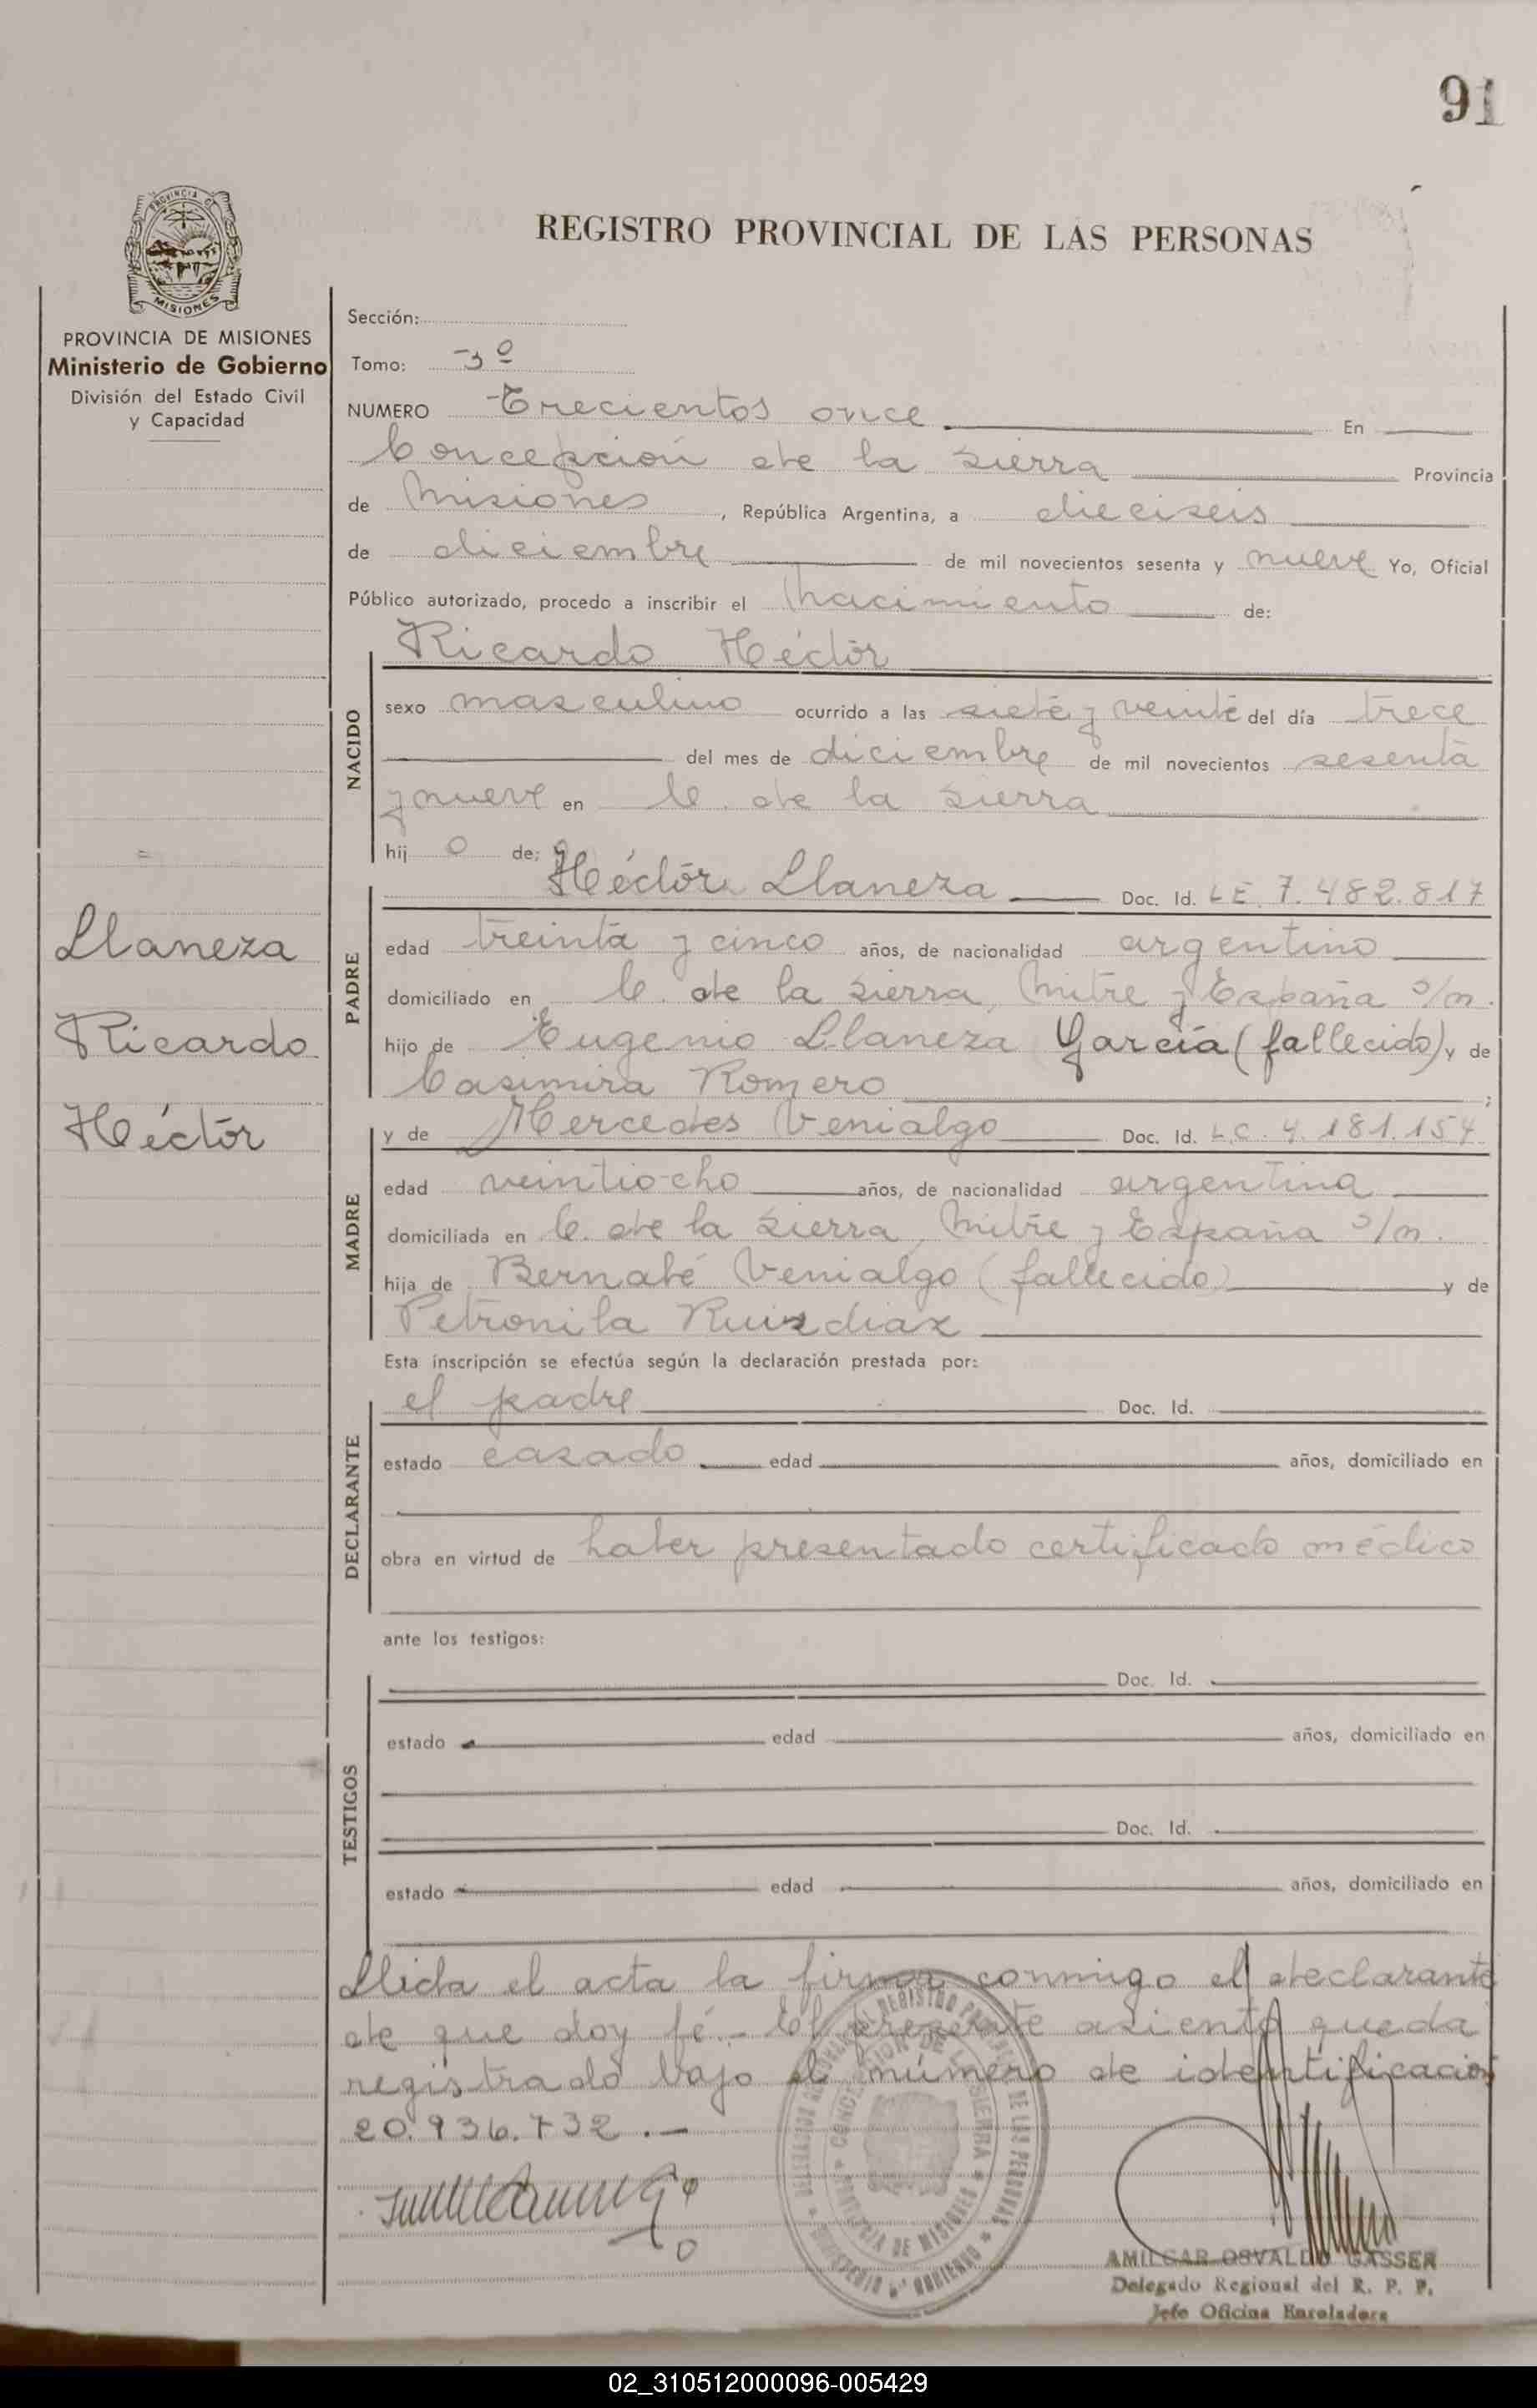 91
PROVINCIA DE
MISIONES
REGISTRO PROVINCIAL DE LAS PERSONAS
PROVINCIA DE MISIONES
Ministerio de Gobierno
División del Estado Civil
y Capacidad
Llaneza
Ricardo
Héctor
Sección:
Tomo: 3º
NUMERO Trecientos once En
Concepción de la Sierra Provincia
de Misiones, República Argentina, a dieciseis
de diciembre de mil novecientos sesenta y nueve Yo, Oficial
Público autorizado, procedo a inscribir el nacimiento de:
Ricardo Héctor
NACIDO
sexo masculino ocurrido a las siete y veinte del día trece
del mes de diciembre de mil novecientos sesenta
y nueve en C. de la Sierra
hij o de:
Héctor Llaneza Doc. Id. LE. 7.482.817
PADRE
edad treinta y cinco años, de nacionalidad argentino
domiciliado en C. de la Sierra, Mitre y España s/n.
hijo de Eugenio Llaneza García (fallecido) y de
Casimira Romero ;
y de Mercedes Venialgo Doc. Id. L.C. 4.181.154
MADRE
edad veintiocho años, de nacionalidad argentina
domiciliada en C. de la Sierra, Mitre y España s/n.
hija de Bernabé Venialgo (fallecido) y de
Petronila Ruizdiaz
Esta inscripción se efectúa según la declaración prestada por:
el padre Doc. Id.
DECLARANTE
estado casado edad años, domiciliado en
obra en virtud de haber presentado certificado médico
ante los testigos:
Doc. Id.
TESTIGOS
estado edad años, domiciliado en
Doc. Id.
estado edad años, domiciliado en
Lleida el acta la firma conmigo el declarante
de que doy fé.- El presente asiento queda
registrado bajo el número de identificación
20.936.732.-
AMILCAR OSVALDO GASSER
Delegado Regional del R. P. P.
Jefe Oficina Enroladora
02_310512000096-005429